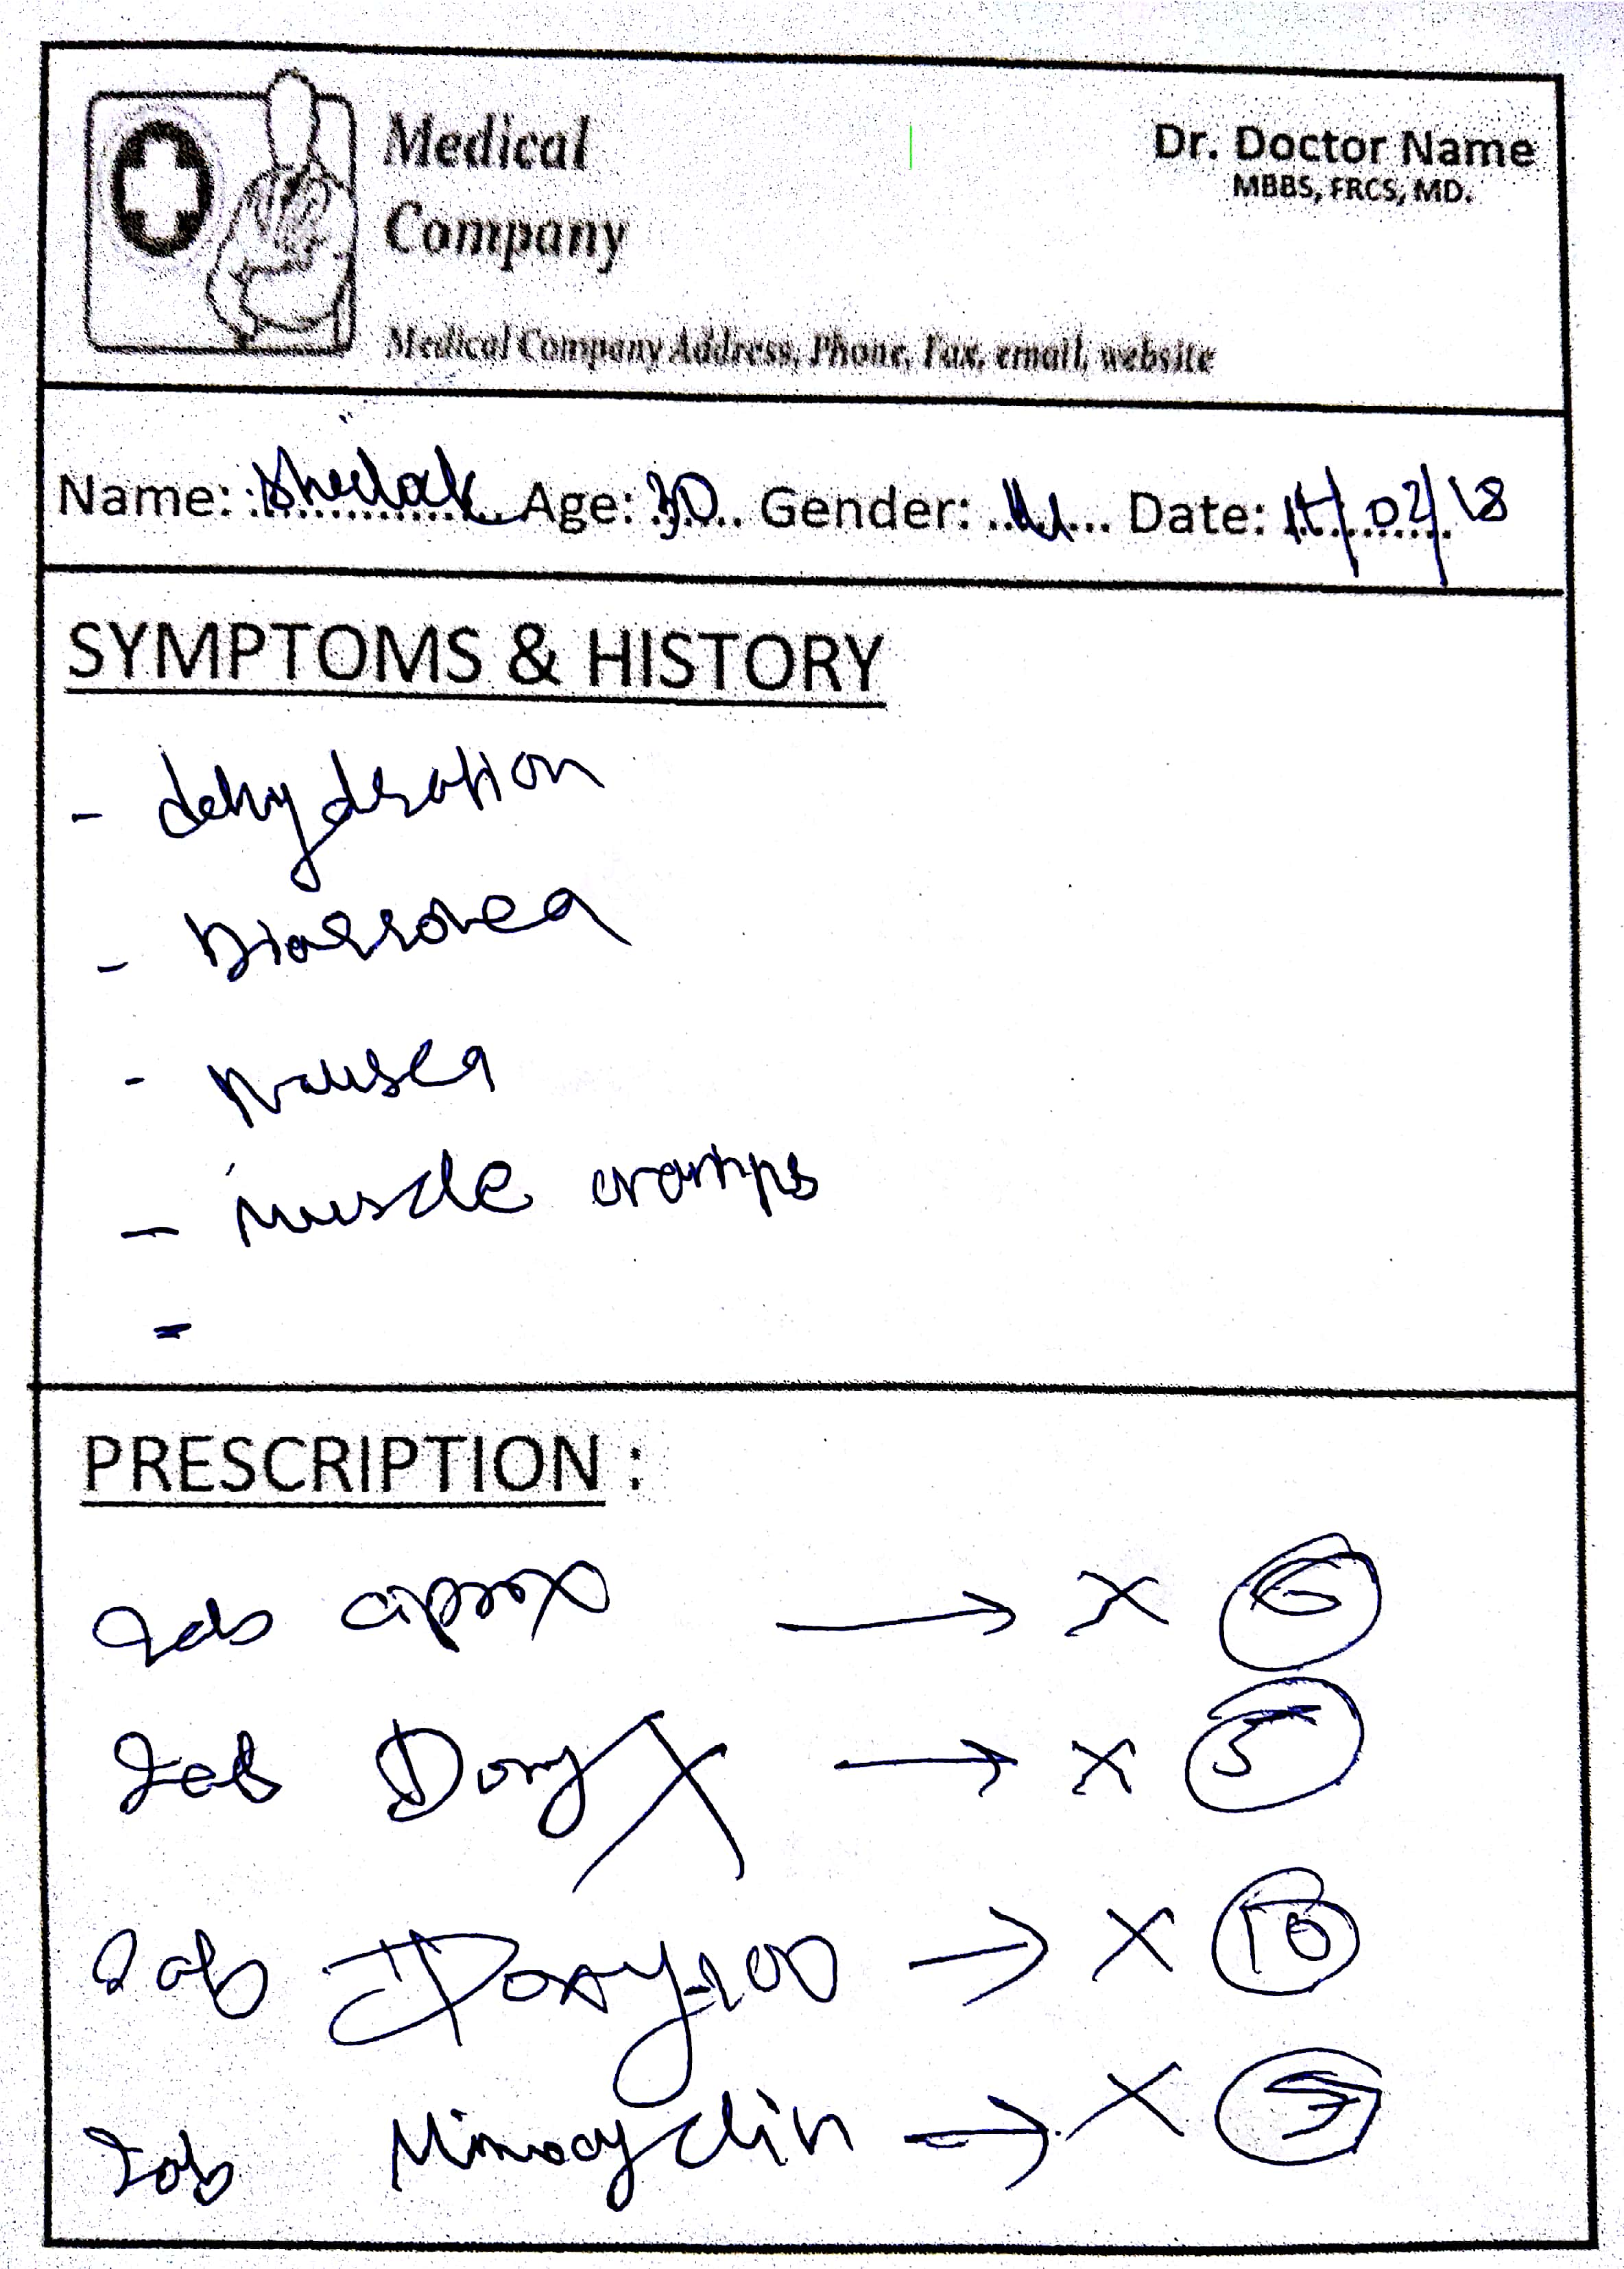 Medical
Company
Dr. Doctor Name
MBBS, FRCS, MD.
Medical Company Address, Phone, Fax, email, website
Name: Age: 30 Gender: M Date: /02/18
SYMPTOMS & HISTORY
- dehydration
- Diarrohea
- Nausea
- muscle cramps
-
PRESCRIPTION :
Tab ciprox → X
Tab Doryx → X 5
Tab Doxy-100 → X 10
Tab Minocyclin → X 7